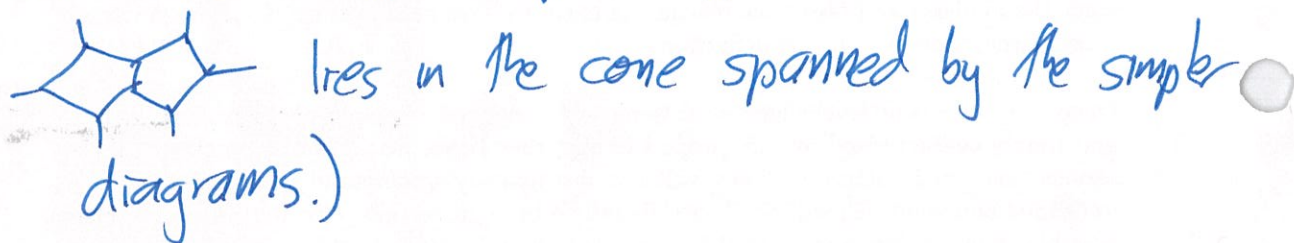 lies in the cone spanned by the simpler
diagrams.)